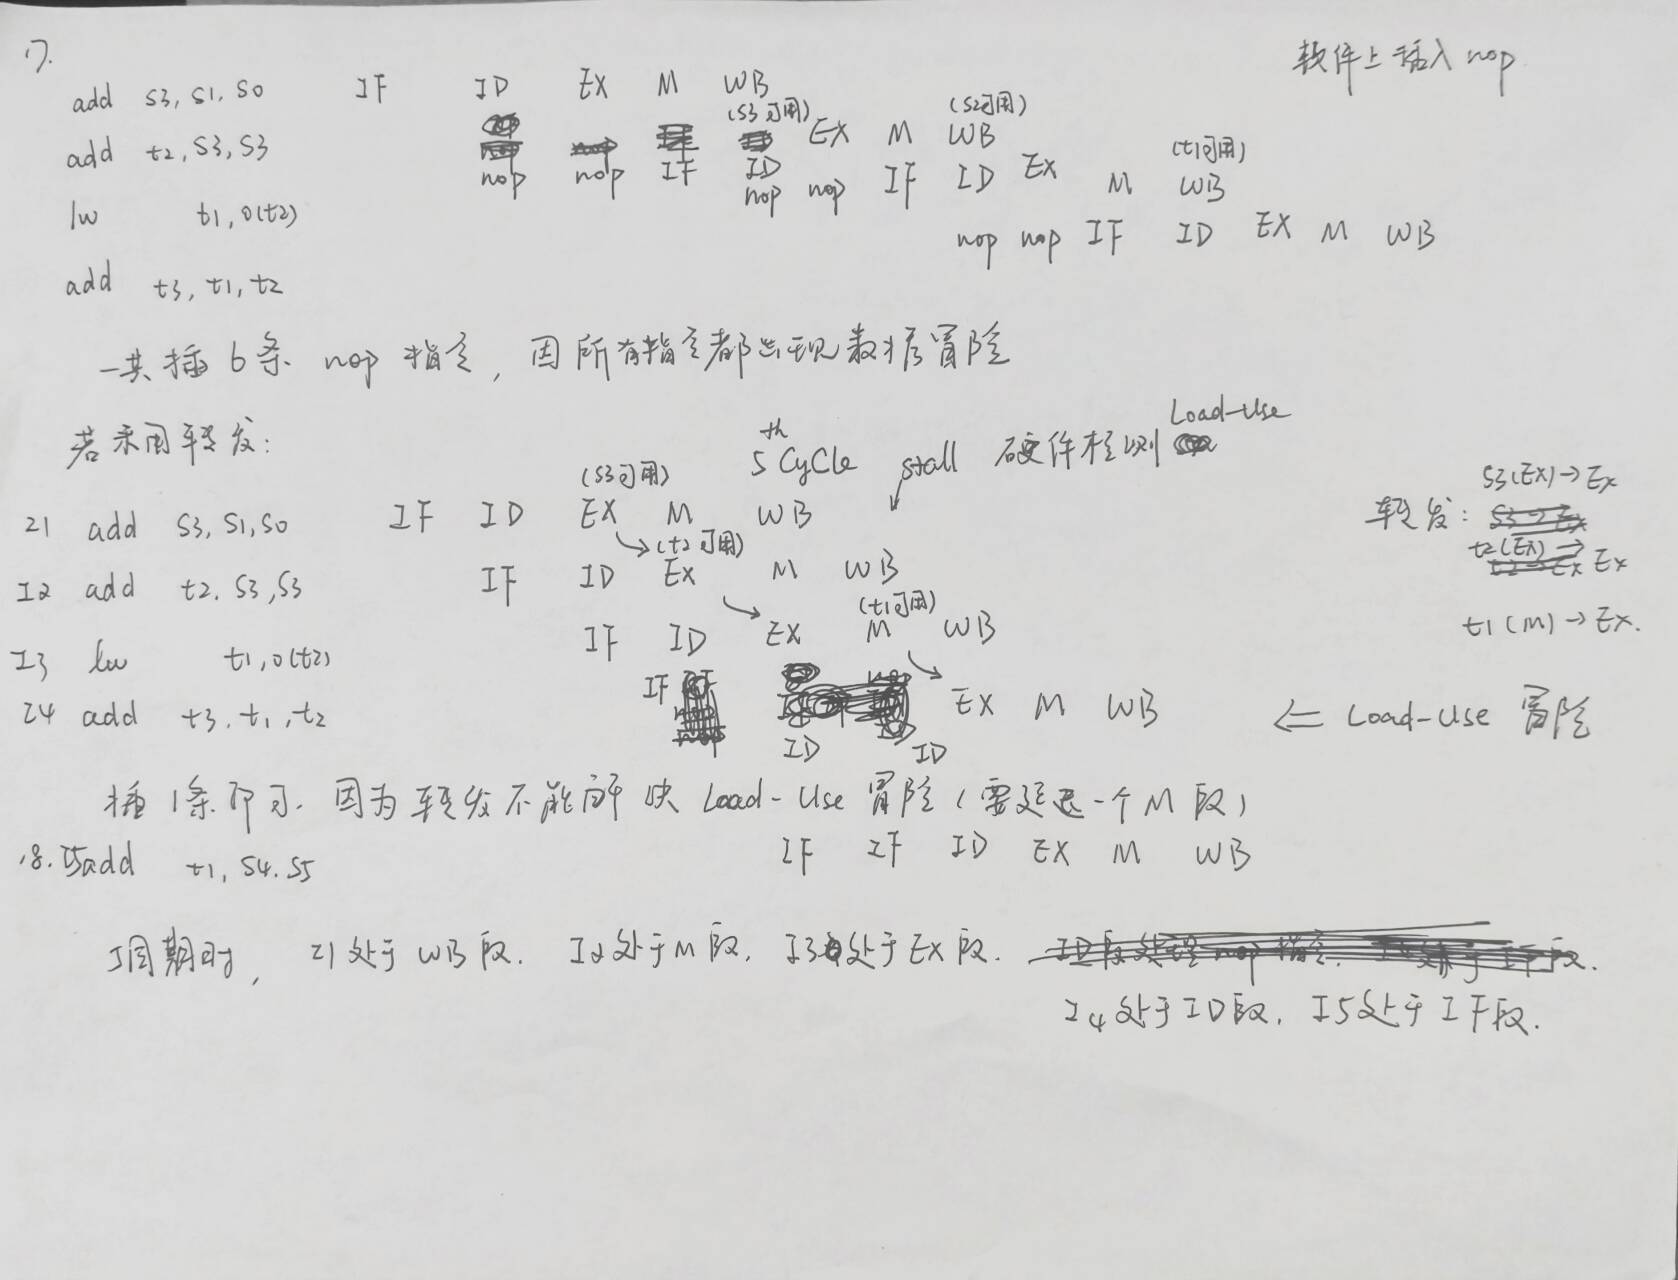 17.
软件上插入nop
add s3, s1, s0 IF ID EX M WB
(s3可用) (s2可用)
add t2, s3, s3 EX M WB
nop nop IF ID (t1可用)
lw t1, 0(t2) nop nop IF ID EX M WB
add t3, t1, t2 nop nop IF ID EX M WB
一共插6条 nop 指令, 因所有指令都出现数据冒险
若采用转发:
5th Cycle stall 硬件检测 Load-Use
(s3可用)
I1 add s3, s1, s0 IF ID EX M WB
转发: s3(EX)→EX
(t2可用)
I2 add t2, s3, s3 IF ID EX M WB
t2(EX)→EX
(t1可用)
I3 lw t1, 0(t2) IF ID EX M WB
t1(M)→EX.
I4 add t3, t1, t2 IF ID ID EX M WB ⇐ Load-Use 冒险
插1条即可. 因为转发不能解决 Load-Use 冒险(需延迟一个M段)
18. I5 add t1, s4, s5 IF IF ID EX M WB
5周期时, I1处于WB段. I2处于M段, I3处于EX段.
I4处于ID段, I5处于IF段.